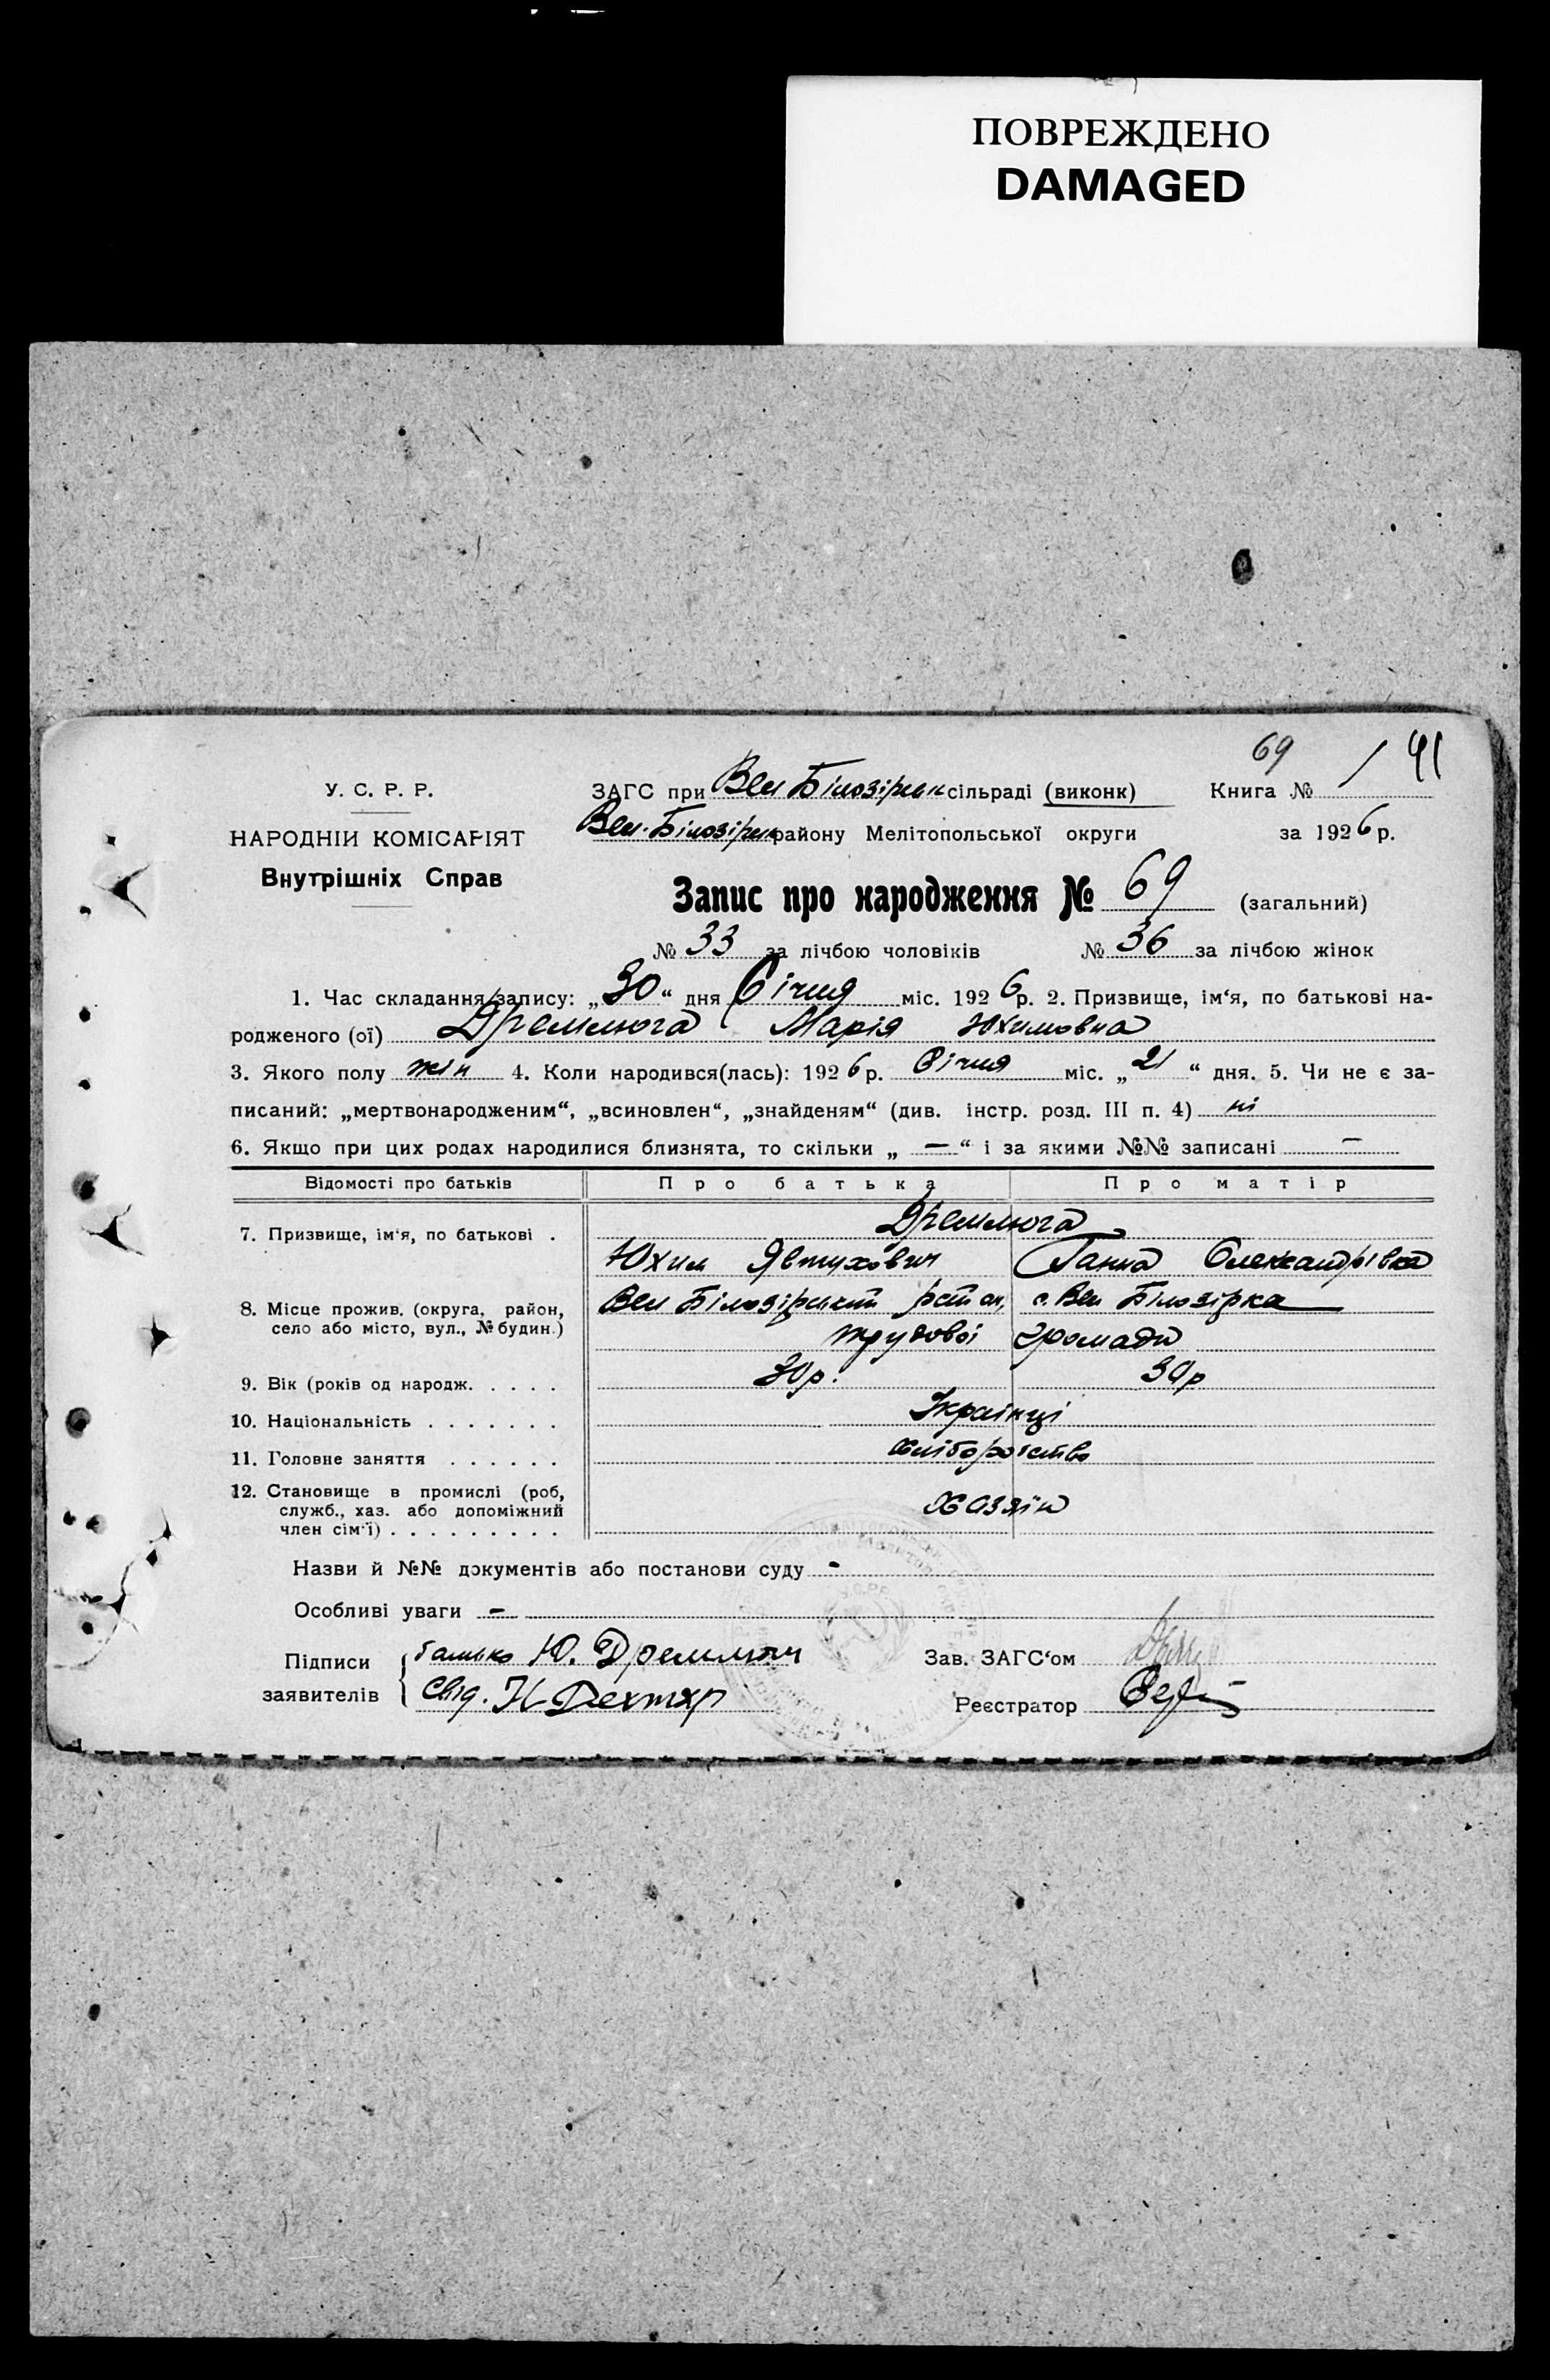 ПОВРЕЖДЕНО
DAMAGED
69 / 41
У. С. Р. Р.
НАРОДНІЙ КОМІСАРІЯТ
Внутрішніх Справ
ЗАГС при Вел Білозірськ сільраді (виконк) Книга №
Вел. Білозірськ району Мелітопольської округи за 1926 р.
Запис про народження № 69 (загальний)
№ 33 за лічбою чоловіків № 36 за лічбою жінок
1. Час складання запису: „30“ дня Січня міс. 1926 р. 2. Призвище, ім‘я, по батькові на-
родженого (ої) Дремлюга Марія Юхимовна
3. Якого полу жін 4. Коли народився(лась): 1926 р. Січня міс. „21“ дня. 5. Чи не є за-
писаний: „мертвонародженим“, „всиновлен“, „знайденям“ (див. інстр. розд. III п. 4) ні
6. Якщо при цих родах народилися близнята, то скільки „ — “ і за якими №№ записані —
Відомості про батьків Про батька Про матір
7. Призвище, ім‘я, по батькові . Дремлюга
Юхим Явтухович Ганна Олександрівна
8. Місце прожив. (округа, район,
село або місто, вул., № будин.)
Вел Білозірської с. Вел Білозірка
трудової громади
9. Вік (років од народж. . . . . 30р. 30р
10. Національність . . . . . . . Українці
11. Головне заняття . . . . . . хліборобство
12. Становище в промислі (роб,
служб., хаз. або допоміжний
член сім‘ї) . . . . . . . . .
хазяїн
Назви й №№ документів або постанови суду -
Особливі уваги -
Підписи
заявителів
батько Ю. Дремлюга
Свід. Н Дехтяр
Зав. ЗАГС‘ом
Реєстратор